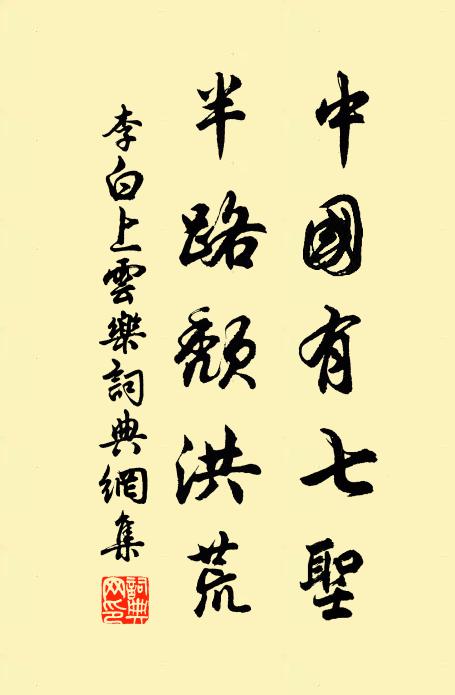 中國有七聖
半路頽洪荒
李白上雲樂詞典網集
詞典網印